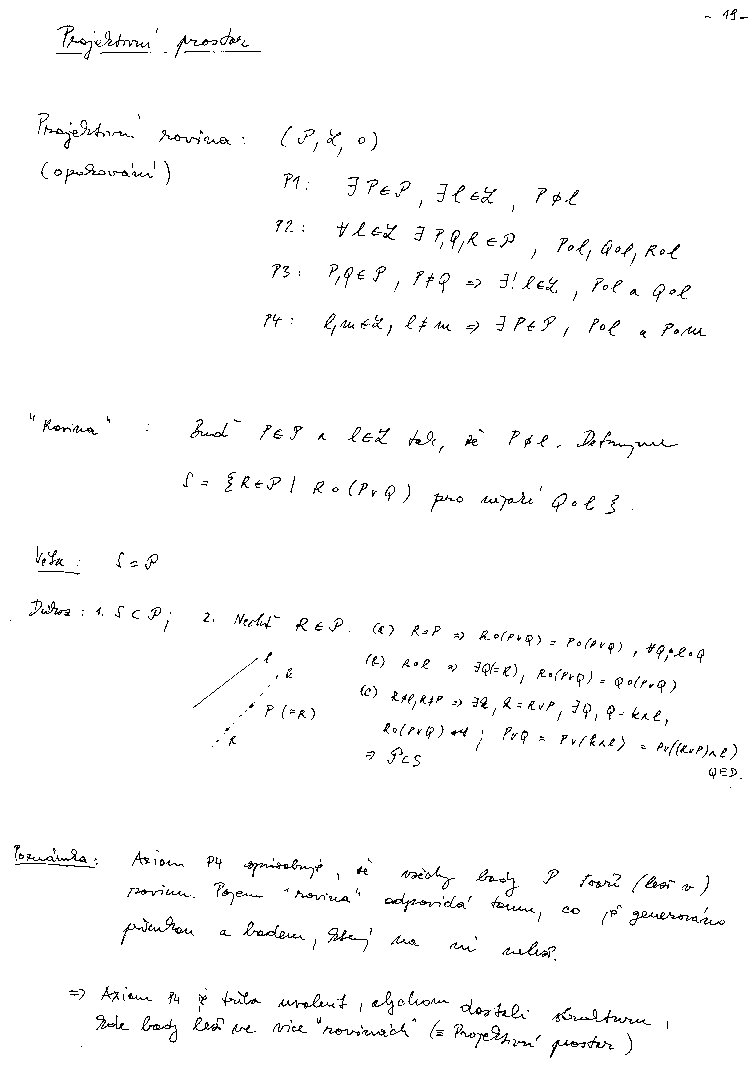 - 19 -
Projektivní prostor
Projektivní rovina : (P, L, o)
(opakování)
P1: ∃ P∈P, ∃ l∈L, P ∅ l
P2: ∀ l∈L ∃ P,Q,R∈P, Pol, Qol, Rol
P3: P,Q∈P, P≠Q ⇒ ∃! l∈L, Pol a Qol
P4: l,m∈L, l≠m ⇒ ∃ P∈P, Pol a Pom
"Rovina" : Buď P∈P a l∈L tak, že P ∅ l. Definujme
S = {R∈P | R o (P∨Q) pro nějaké Q o l}.
Věta: S = P
Důkaz: 1. S ⊂ P; 2. Nechť R∈P. (a) R=P ⇒ Ro(P∨Q) = Po(P∨Q), ∀Q; Q o l
(b) Rol ⇒ ∃Q(=R), Ro(P∨Q) = Qo(P∨Q)
(c) R∅l, R≠P ⇒ ∃k, k=R∨P, ∃Q, Q=k∧l,
l
k
P (=R)
R
Ro(P∨Q) ; P∨Q = P∨(k∧l) = P∨((R∨P)∧l)
⇒ P⊂S
QED.
Poznámka: Axiom P4 způsobuje, že všechny body P tvoří (leží v)
rovinu. Pojem "rovina" odpovídá tomu, co je generováno
přímkou a bodem, který na ní neleží.
⇒ Axiom P4 je třeba uvolnit, abychom dostali strukturu,
kde body leží ve více "rovinách" (≡ Projektivní prostor)